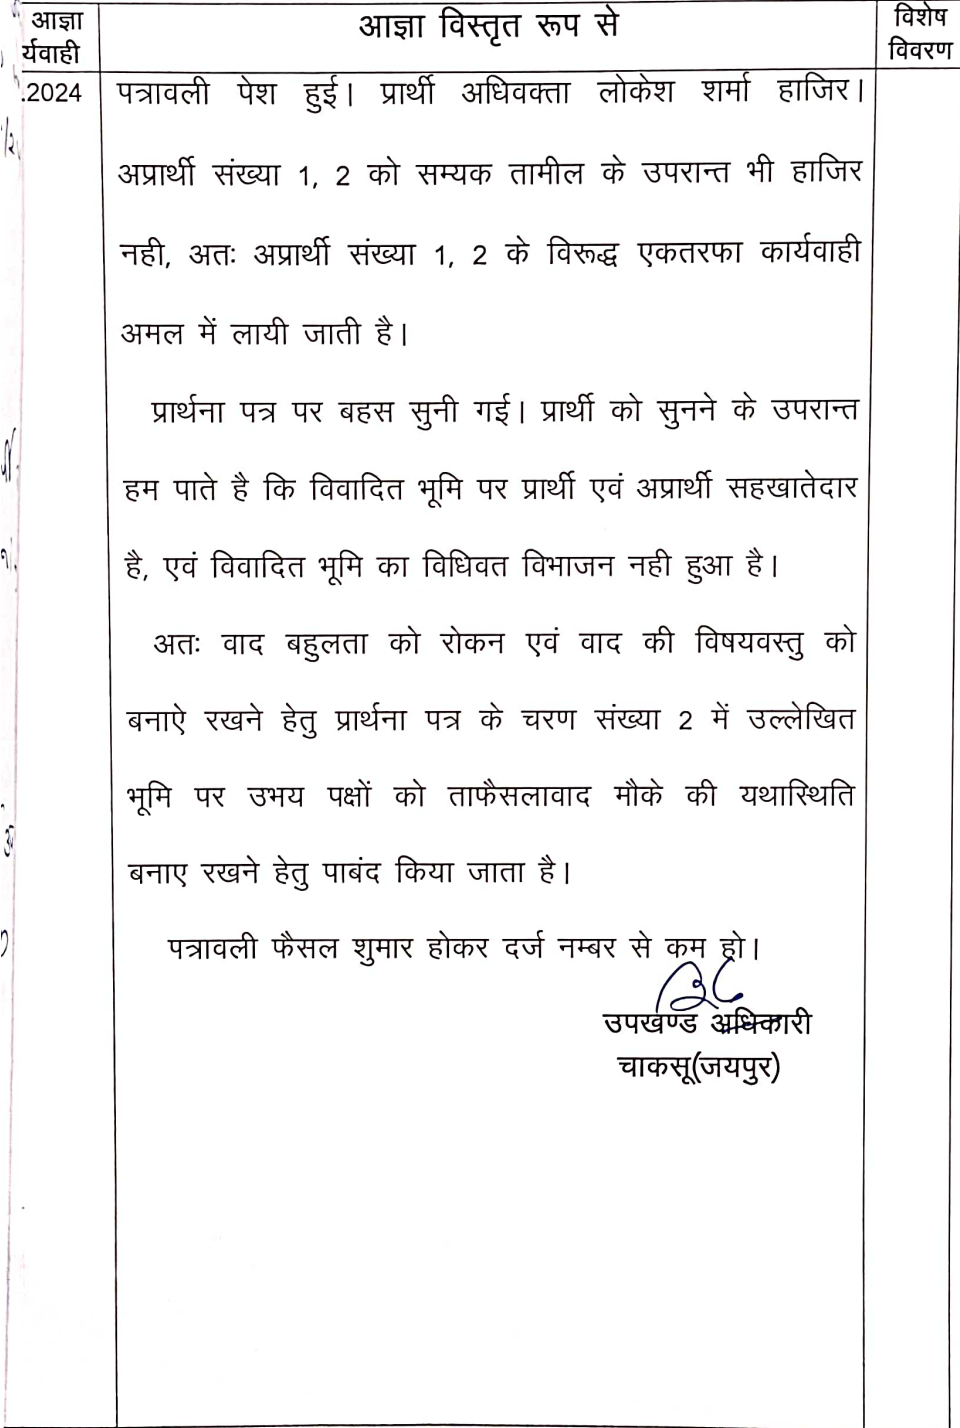 आज्ञा
र्यवाही
आज्ञा विस्तृत रूप से
विशेष
विवरण
.2024
पत्रावली पेश हुई। प्रार्थी अधिवक्ता लोकेश शर्मा हाजिर।
अप्रार्थी संख्या 1, 2 को सम्यक तामील के उपरान्त भी हाजिर
नही, अतः अप्रार्थी संख्या 1, 2 के विरूद्ध एकतरफा कार्यवाही
अमल में लायी जाती है।
प्रार्थना पत्र पर बहस सुनी गई। प्रार्थी को सुनने के उपरान्त
हम पाते है कि विवादित भूमि पर प्रार्थी एवं अप्रार्थी सहखातेदार
है, एवं विवादित भूमि का विधिवत विभाजन नही हुआ है।
अतः वाद बहुलता को रोकन एवं वाद की विषयवस्तु को
बनाऐ रखने हेतु प्रार्थना पत्र के चरण संख्या 2 में उल्लेखित
भूमि पर उभय पक्षों को ताफैसलावाद मौके की यथास्थिति
बनाए रखने हेतु पाबंद किया जाता है।
पत्रावली फैसल शुमार होकर दर्ज नम्बर से कम हो।
उपखण्ड अधिकारी
चाकसू(जयपुर)